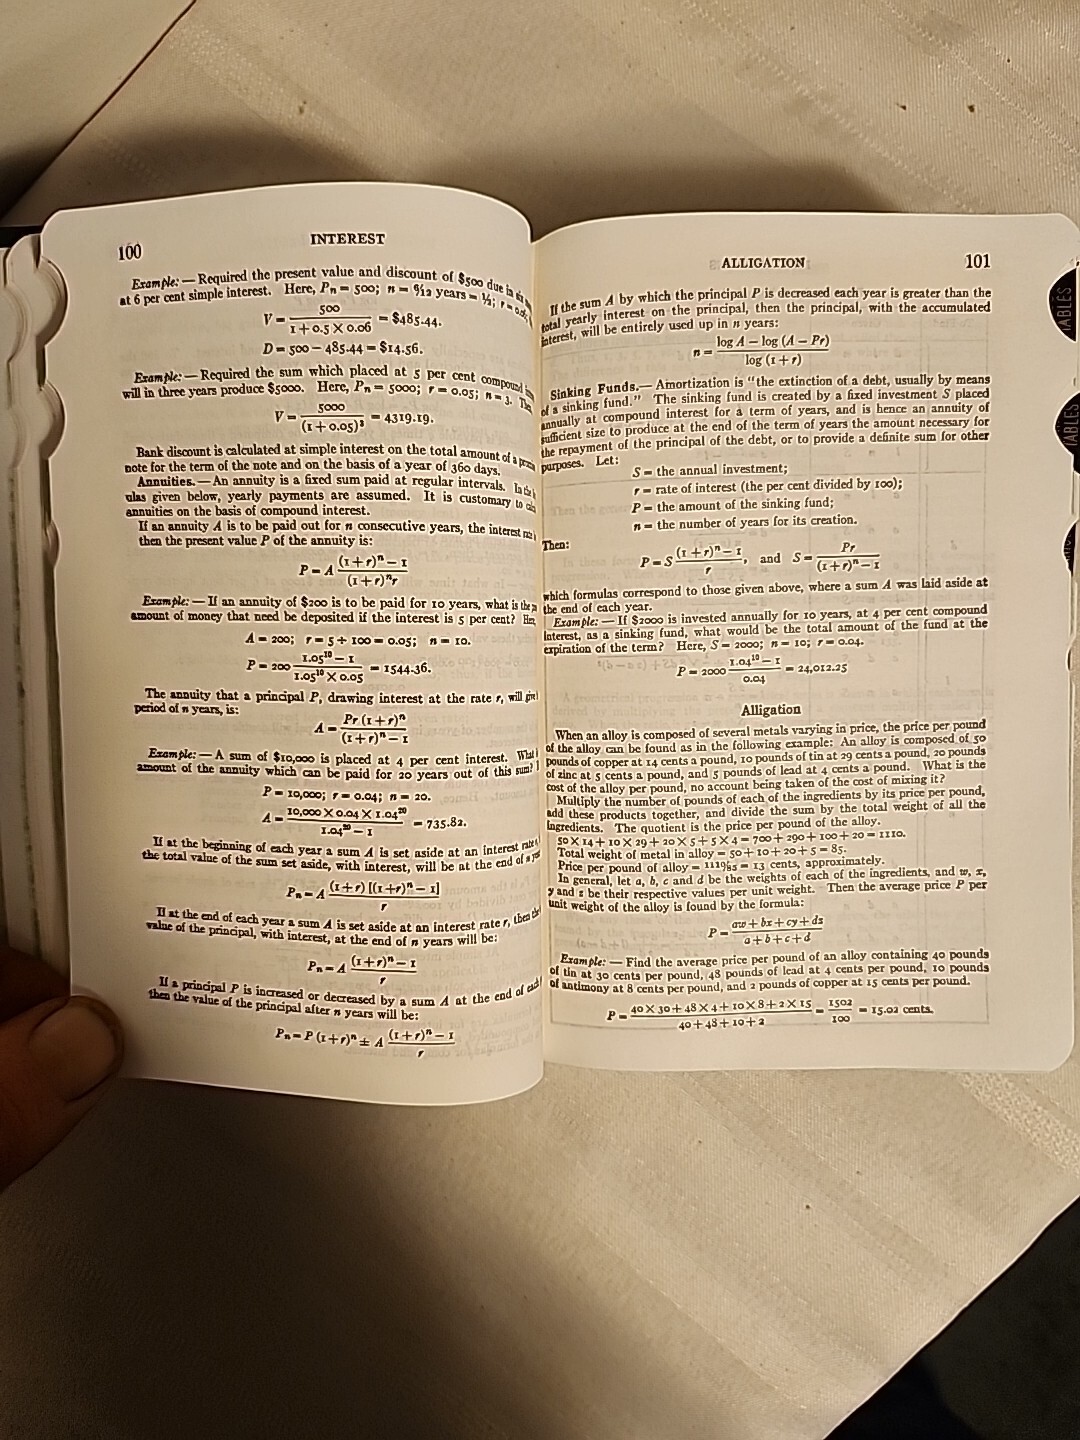 100
INTEREST
Example: — Required the present value and discount of $500 due in six
at 6 per cent simple interest. Here, Pn = 500; n = 6/12 years = ½; r = 0.06.
V = 500 / 1 + 0.5 × 0.06 = $485.44.
D = 500 − 485.44 = $14.56.
Example: — Required the sum which placed at 5 per cent compound
will in three years produce $5000. Here, Pn = 5000; r = 0.05; n = 3. Then
V = 5000 / (1 + 0.05)³ = 4319.19.
Bank discount is calculated at simple interest on the total amount of a
note for the term of the note and on the basis of a year of 360 days.
Annuities. — An annuity is a fixed sum paid at regular intervals. In the
ulas given below, yearly payments are assumed. It is customary to
annuities on the basis of compound interest.
If an annuity A is to be paid out for n consecutive years, the interest
then the present value P of the annuity is:
P = A (1 + r)ⁿ − 1 / (1 + r)ⁿr
Example: — If an annuity of $200 is to be paid for 10 years, what is the
amount of money that need be deposited if the interest is 5 per cent?
A = 200; r = 5 ÷ 100 = 0.05; n = 10.
P = 200 1.05¹⁰ − 1 / 1.05¹⁰ × 0.05 = 1544.36.
The annuity that a principal P, drawing interest at the rate r, will give
period of n years, is:
A = Pr (1 + r)ⁿ / (1 + r)ⁿ − 1
Example: — A sum of $10,000 is placed at 4 per cent interest. What
amount of the annuity which can be paid for 20 years out of this sum?
P = 10,000; r = 0.04; n = 20.
A = 10,000 × 0.04 × 1.04²⁰ / 1.04²⁰ − 1 = 735.82.
If at the beginning of each year a sum A is set aside at an interest rate
the total value of the sum set aside, with interest, will be at the end of n
Pn = A (1 + r) [(1 + r)ⁿ − 1] / r
If at the end of each year a sum A is set aside at an interest rate r, then the
value of the principal, with interest, at the end of n years will be:
Pn = A (1 + r)ⁿ − 1 / r
If a principal P is increased or decreased by a sum A at the end of each
then the value of the principal after n years will be:
Pn = P (1 + r)ⁿ ± A (1 + r)ⁿ − 1 / r
ALLIGATION
101
If the sum A by which the principal P is decreased each year is greater than the
total yearly interest on the principal, then the principal, with the accumulated
interest, will be entirely used up in n years:
n = log A − log (A − Pr) / log (1 + r)
Sinking Funds. — Amortization is "the extinction of a debt, usually by means
of a sinking fund." The sinking fund is created by a fixed investment S placed
annually at compound interest for a term of years, and is hence an annuity of
sufficient size to produce at the end of the term of years the amount necessary for
the repayment of the principal of the debt, or to provide a definite sum for other
purposes. Let:
S = the annual investment;
r = rate of interest (the per cent divided by 100);
P = the amount of the sinking fund;
n = the number of years for its creation.
Then:
P = S (1 + r)ⁿ − 1 / r, and S = Pr / (1 + r)ⁿ − 1
which formulas correspond to those given above, where a sum A was laid aside at
the end of each year.
Example: — If $2000 is invested annually for 10 years, at 4 per cent compound
interest, as a sinking fund, what would be the total amount of the fund at the
expiration of the term? Here, S = 2000; n = 10; r = 0.04.
P = 2000 1.04¹⁰ − 1 / 0.04 = 24,012.25
Alligation
When an alloy is composed of several metals varying in price, the price per pound
of the alloy can be found as in the following example: An alloy is composed of 50
pounds of copper at 14 cents a pound, 10 pounds of tin at 29 cents a pound, 20 pounds
of zinc at 5 cents a pound, and 5 pounds of lead at 4 cents a pound. What is the
cost of the alloy per pound, no account being taken of the cost of mixing it?
Multiply the number of pounds of each of the ingredients by its price per pound,
add these products together, and divide the sum by the total weight of all the
ingredients. The quotient is the price per pound of the alloy.
50 × 14 + 10 × 29 + 20 × 5 + 5 × 4 = 700 + 290 + 100 + 20 = 1110.
Total weight of metal in alloy = 50 + 10 + 20 + 5 = 85.
Price per pound of alloy = 1110/85 = 13 cents, approximately.
In general, let a, b, c and d be the weights of each of the ingredients, and w, x,
y and z be their respective values per unit weight. Then the average price P per
unit weight of the alloy is found by the formula:
P = aw + bx + cy + dz / a + b + c + d
Example: — Find the average price per pound of an alloy containing 40 pounds
of tin at 30 cents per pound, 48 pounds of lead at 4 cents per pound, 10 pounds
of antimony at 8 cents per pound, and 2 pounds of copper at 15 cents per pound.
P = 40 × 30 + 48 × 4 + 10 × 8 + 2 × 15 / 40 + 48 + 10 + 2 = 1502 / 100 = 15.02 cents.
TABLES
TABLES